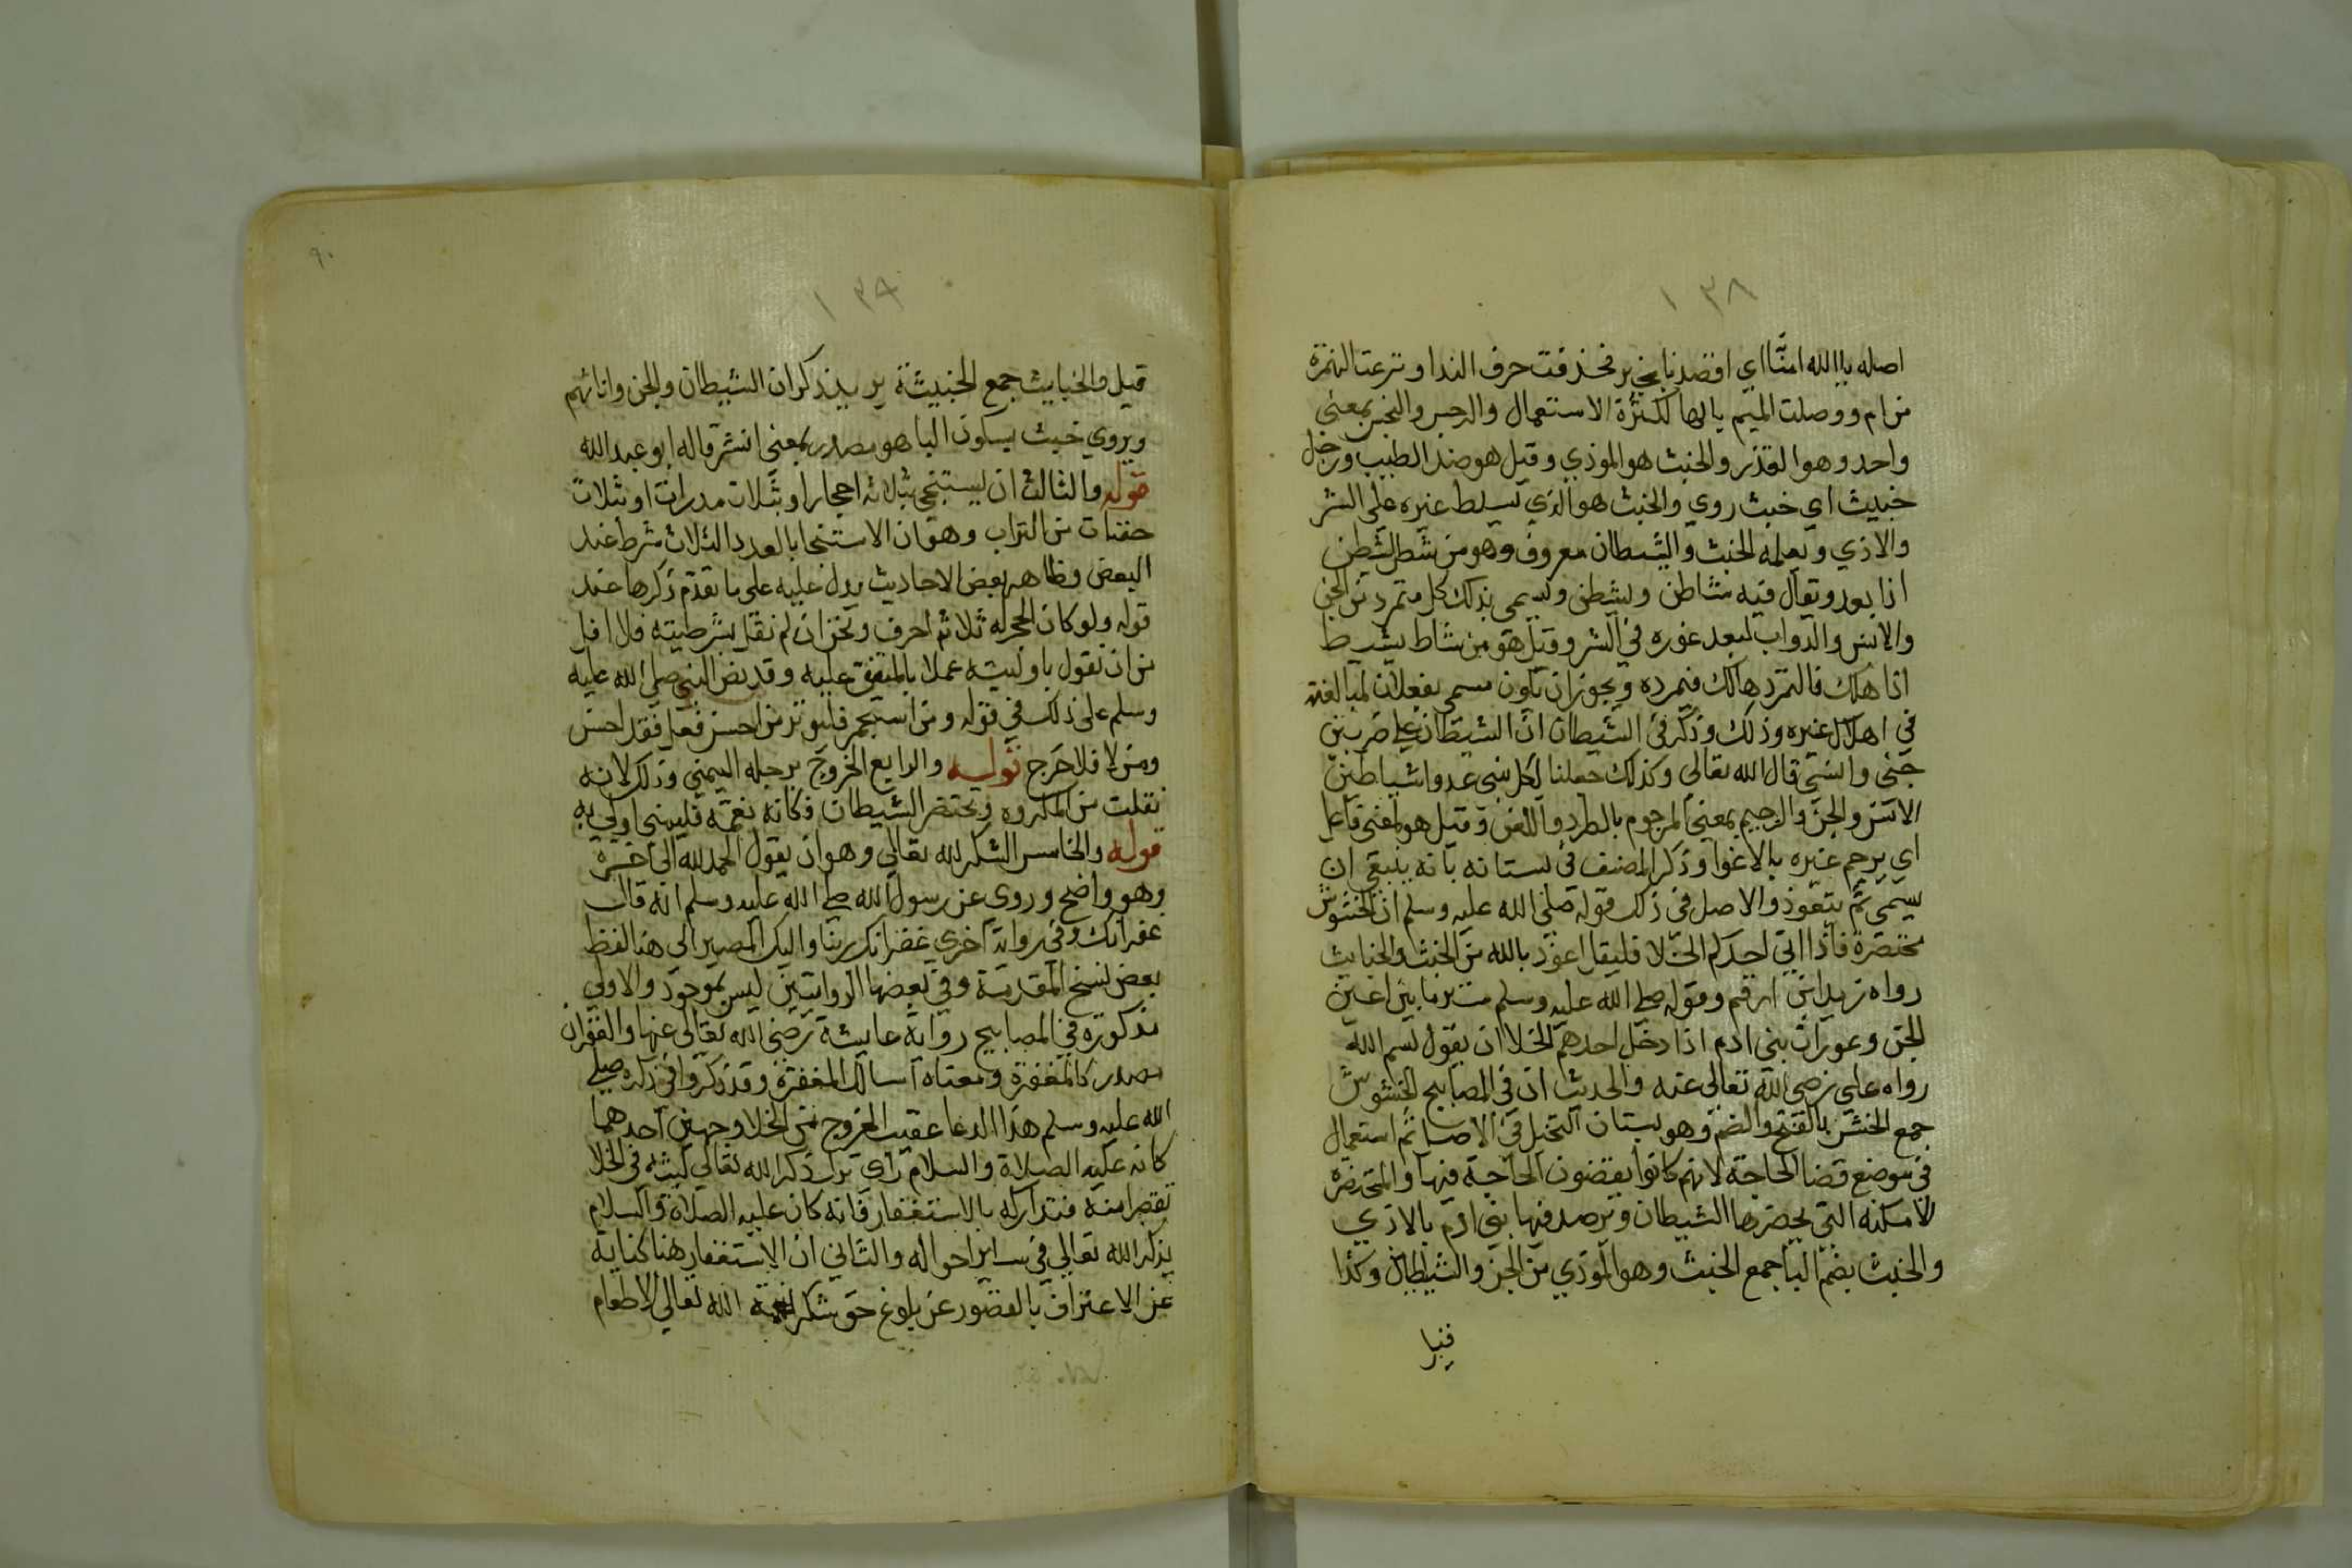 ١٣٨
اصله يا الله امنا اي اقصدنا بخير فحذفت حرف الندا ونزعت الهمزة
من ام ووصلت الميم بالها لكثرة الاستعمال والرجس والنجس بمعني
واحد وهو القذر والخبث هو الموذي وقيل هو ضد الطيب ورجل
خبيث اي خبث روي والخبث هو الذي يسلط غيره علي الشر
والاذي ويعلمه الخبث والشيطان معروف وهو من شطن يشطن
اذا بعد ويقال فيه شاطن وليشطن ويسمي بذلك كل متمرد من الجن
والانس والدواب لبعد غوره في الشر وقيل هو من شاط يشيط
اذا هلك فالتمرد هالك فتمرده ويجوز ان يكون مسمي بفعلان لمبالغته
في اهلاك غيره وذلك وذكر في الشيطان ان الشيطان علي ضربين
جني وانسي قال الله تعالي وكذلك جعلنا لكل نبي عدوا شياطين
الانس والجن والرجيم بمعني المرجوم بالطرد واللعن وقيل هو بمعني فاعل
اي يرجم غيره بالاغوا وذكر المصنف في بستانه بانه ينبغي ان
يسمي ثم يتعوذ والاصل في ذلك قوله صلي الله عليه وسلم ان الحشوش
محتضرة فاذا اتي احدكم الخلا فليقل اعوذ بالله من الخبث والخبايث
رواه زيد ابن ارقم وقوله صلي الله عليه وسلم ستر ما بين اعين
الجن وعورات بني ادم اذا دخل احدهم الخلا ان يقول بسم الله
رواه علي رضي الله تعالي عنه والحديث ان في المصابيح الحشوش
جمع الحش بالفتح والضم وهو بستان النخيل في الاصل ثم استعمال
في موضع قضا الحاجة لانهم كانوا يقضون الحاجة فيها والمحتضرة
الامكنه التي يحضرها الشيطان ويرصد فيها بني ادم بالاذي
والخبث بضم البا جمع الخبث وهو الموذي من الجن والشيطان وكذا
قيل
١٣٩
٩٠
قيل والخبايث جمع الخبيثة يريد ذكران الشيطان والجن واناثهم
ويروي خبث بسكون البا هو مصدر بمعني الشر قاله ابو عبد الله
قوله والثالث ان يستنجي بثلاثه احجارا وبثلاث مدرات او بثلاث
حفنات من التراب وهو ان الاستنجا بالعدد الثلاث شرط عند
البعض وظاهر بعض الاحاديث يدل عليه علي ما تقدم ذكرها عند
قوله ولو كان الحجر له ثلاثه احرف ونحن ان لم نقل بشرطيته فلا اقل
من ان نقول باوليته عملا بالمتفق عليه وقد نص النبي صلي الله عليه
وسلم علي ذلك في قوله ومن استجمر فليوتر من احسن فعل فقد احسن
ومن لا فلا حرج قوله والرابع الخروج برجله اليمني وذلك لانه
نقلت من المكروه ويحتضر الشيطان فكانه نعمة فليمني اولي به
قوله والخامس الشكر لله تعالي وهو ان يقول الحمد لله الي اخره
وهو واضح وروي عن رسول الله صلي الله عليه وسلم انه قال
غفرانك وفي رواية اخري غفرانك ربنا واليك المصير الي هنا لفظ
بعض نسخ المقدمة وفي بعضها الروايتين ليس بموجود والاولي
مذكوره في المصابيح رواية عايشة رضي الله تعالي عنها والغفران
مصدر كالمغفرة ومعناه اسالك المغفرة وقد ذكروا في ذكره صلي
الله عليه وسلم هذا الدعا عقيب الخروج من الخلا وجهين احدهما
كانه عليه الصلاة والسلام راي ترك ذكر الله تعالي لبثه في الخلا
تقصيرا منه فتداركه بالاستغفار فانه كان عليه الصلاة والسلام
يذكر الله تعالي في ساير احواله والثاني ان الاستغفار هنا كناية
عن الاعتراف بالقصور عن بلوغ حق شكر نعمة الله تعالي الاطعام